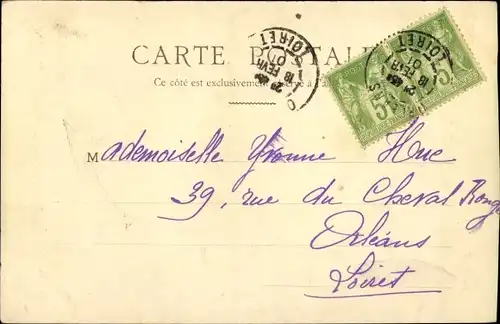 CARTE POSTALE
Ce côté est exclusivement réservé à l'a
LOIRET
18
FEVR
01
LOIRET
18
FEVR
01
5
5
Mademoiselle Yvonne Huc
39, rue du Cheval Rouge
Orléans
Loiret